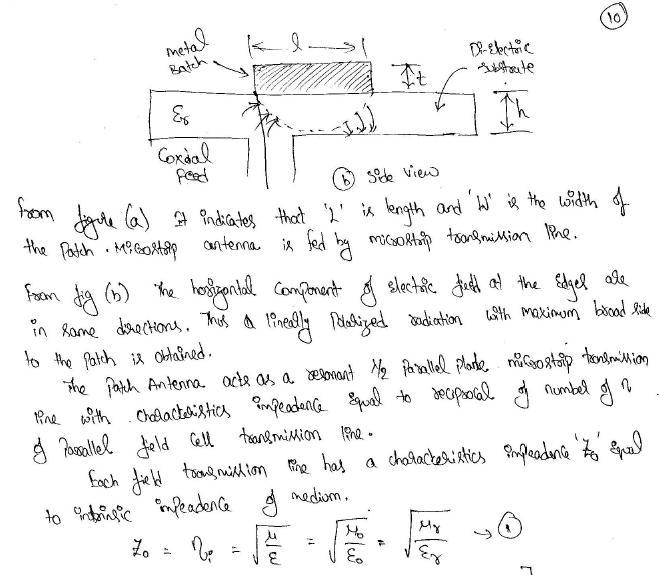 10
metal
Batch
l
t
Di-Electric
substrate
εr
h
Coxial
feed
(b) side view
From figure (a) It indicates that 'L' is length and 'W' is the width of
the Patch. Microstrip antenna is fed by microstrip transmission line.
From fig (b) The horizontal component of electric field at the edges are
in same directions. Thus a linearly polarized radiation with maximum broad side
to the patch is obtained.
The Patch Antenna acts as a resonant λ/2 Parallel Plate microstrip transmission
line with characteristics impeadence equal to reciprocal of number of n
of Parallel field cell transmission line.
Each field transmission line has a characteristics impeadence 'Z₀' equal
to intrinsic impeadence of medium.
Z₀ = ηi = √(μ/ε) = √(μ₀/ε₀) = √(μr/εr) → ①